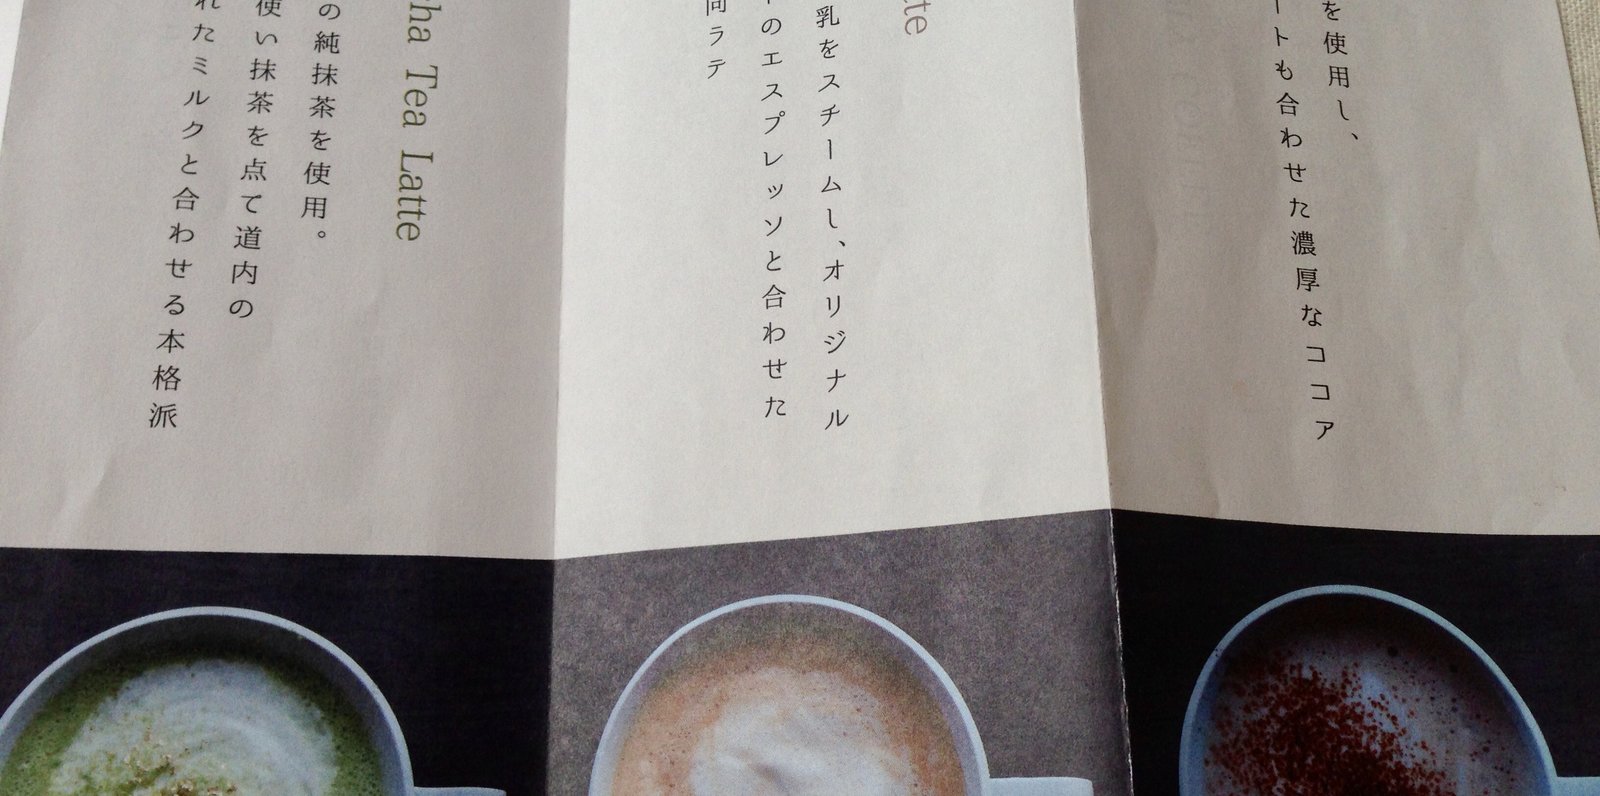 を使用し、
ートも合わせた濃厚なココア
tte
乳をスチームし、オリジナル
のエスプレッソと合わせた
ラテ
ha Tea Latte
の純抹茶を使用。
使い抹茶を点て道内の
れたミルクと合わせる本格派